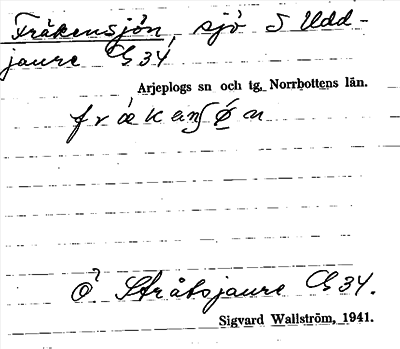 Fräkensjön, sjö S Udd-
jaure C 34
Arjeplogs sn och tg, Norrbottens län.
Ö? Stråtsjaure C 34.
Sigvard Wallström, 1941.